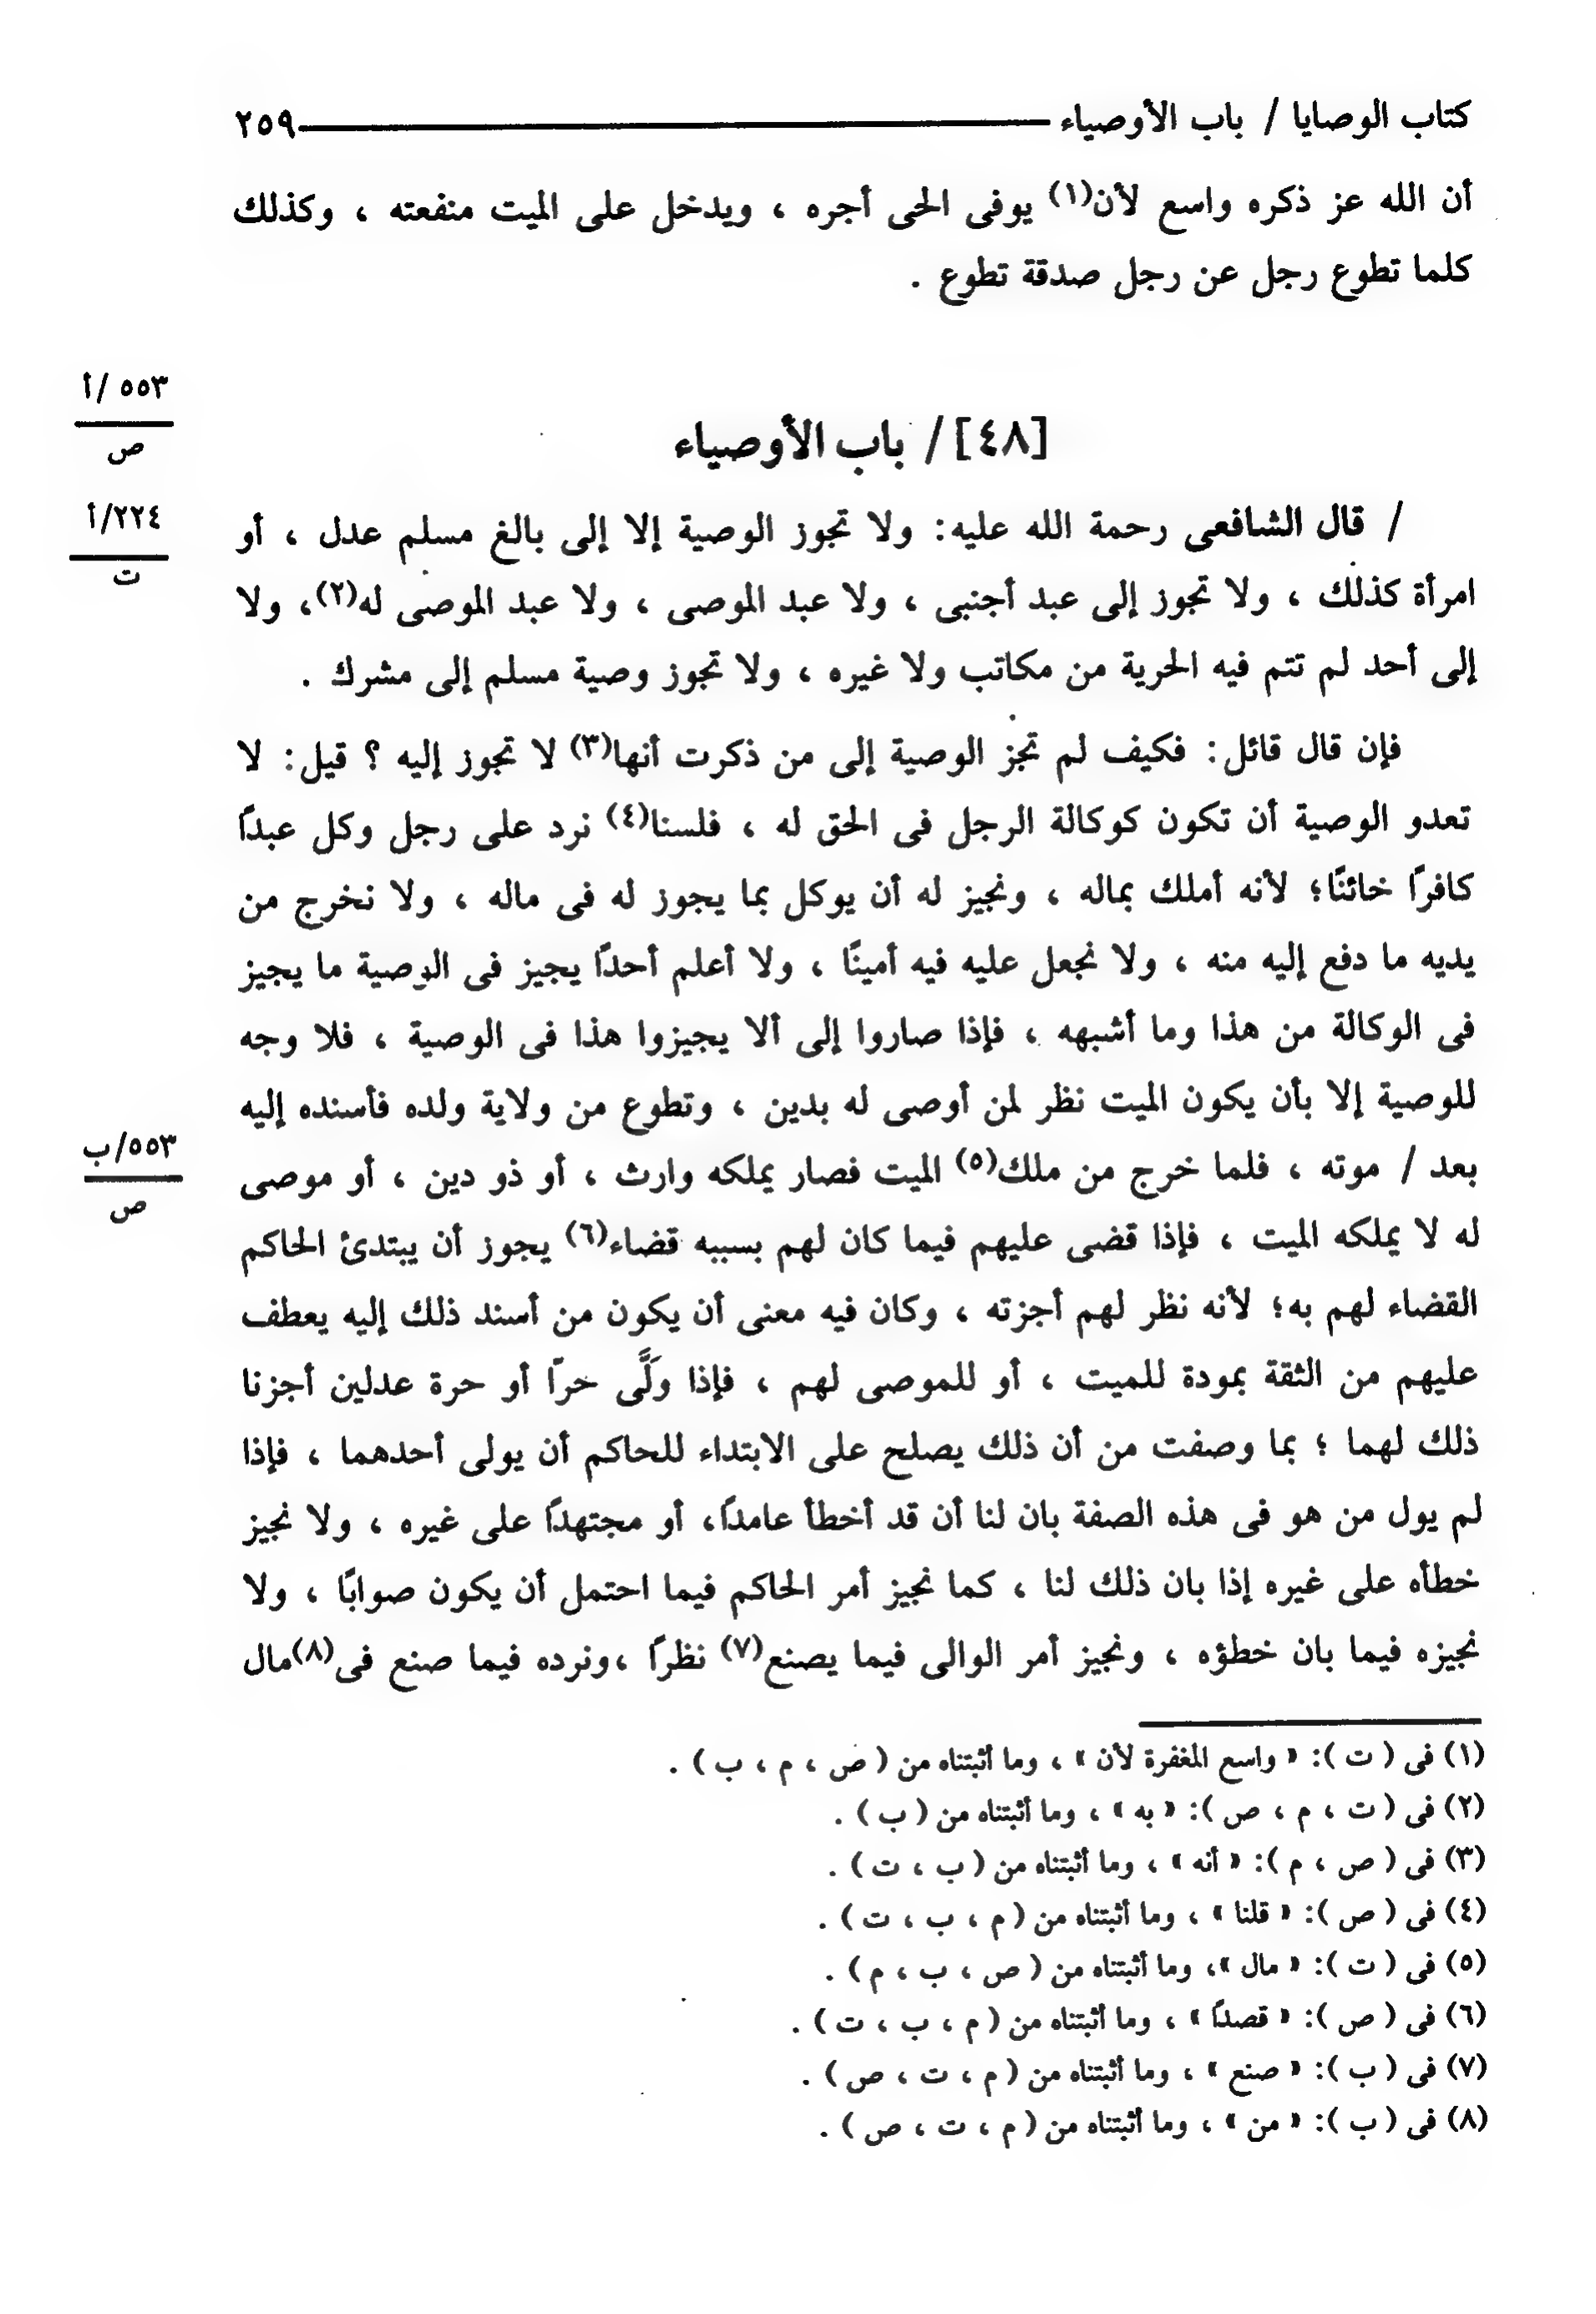 كتاب الوصايا / باب الأوصياء ٢٥٩
أن الله عز ذكره واسع لأن(١) يوفى الحى أجره ، ويدخل على الميت منفعته ، وكذلك
كلما تطوع رجل عن رجل صدقة تطوع .
٥٥٣ /أ
ص
[٤٨] / باب الأوصياء
٢٢٤/أ
ت
/ قال الشافعى رحمة الله عليه: ولا تجوز الوصية إلا إلى بالغ مسلم عدل ، أو
امرأة كذلك ، ولا تجوز إلى عبد أجنبى ، ولا عبد الموصى ، ولا عبد الموصى له(٢)، ولا
إلى أحد لم تتم فيه الحرية من مكاتب ولا غيره ، ولا تجوز وصية مسلم إلى مشرك .
فإن قال قائل: فكيف لم تجز الوصية إلى من ذكرت أنها(٣) لا تجوز إليه ؟ قيل: لا
تعدو الوصية أن تكون كوكالة الرجل فى الحق له ، فلسنا(٤) نرد على رجل وكل عبدًا
كافرًا خائنًا؛ لأنه أملك بماله ، ونجيز له أن يوكل بما يجوز له فى ماله ، ولا نخرج من
يديه ما دفع إليه منه ، ولا نجعل عليه فيه أمينًا ، ولا أعلم أحدًا يجيز فى الوصية ما يجيز
فى الوكالة من هذا وما أشبهه ، فإذا صاروا إلى ألا يجيزوا هذا فى الوصية ، فلا وجه
للوصية إلا بأن يكون الميت نظر لمن أوصى له بدين ، وتطوع من ولاية ولده فأسنده إليه
بعد / موته ، فلما خرج من ملك(٥) الميت فصار يملكه وارث ، أو ذو دين ، أو موصى
٥٥٣/ب
ص
له لا يملكه الميت ، فإذا قضى عليهم فيما كان لهم بسببه قضاء(٦) يجوز أن يبتدئ الحاكم
القضاء لهم به؛ لأنه نظر لهم أجزته ، وكان فيه معنى أن يكون من أسند ذلك إليه يعطف
عليهم من الثقة بمودة للميت ، أو للموصى لهم ، فإذا وَلَّى حرّا أو حرة عدلين أجزنا
ذلك لهما ؛ بما وصفت من أن ذلك يصلح على الابتداء للحاكم أن يولى أحدهما ، فإذا
لم يول من هو فى هذه الصفة بان لنا أن قد أخطأ عامدًا، أو مجتهدًا على غيره ، ولا نجيز
خطأه على غيره إذا بان ذلك لنا ، كما نجيز أمر الحاكم فيما احتمل أن يكون صوابًا ، ولا
نجيزه فيما بان خطؤه ، ونجيز أمر الوالى فيما يصنع(٧) نظرًا ،ونرده فيما صنع فى(٨)مال
(١) فى ( ت ): « واسع المغفرة لأن » ، وما أثبتناه من ( ص ، م ، ب ) .
(٢) فى ( ت ، م ، ص ): « به » ، وما أثبتناه من ( ب ) .
(٣) فى ( ص ، م ): « أنه » ، وما أثبتناه من ( ب ، ت ) .
(٤) فى ( ص ): « قلنا » ، وما أثبتناه من ( م ، ب ، ت ) .
(٥) فى ( ت ): « مال »، وما أثبتناه من ( ص ، ب ، م ) .
(٦) فى ( ص ): « قصدًا » ، وما أثبتناه من ( م ، ب ، ت ) .
(٧) فى ( ب ): « صنع » ، وما أثبتناه من ( م ، ت ، ص ) .
(٨) فى ( ب ): « من » ، وما أثبتناه من ( م ، ت ، ص ) .